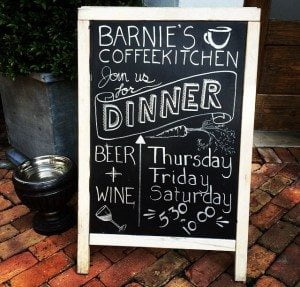 BARNIE'S
COFFEEKITCHEN
Join us
for
DINNER
BEER
+
WINE
Thursday
Friday
Saturday
5:30
10:00